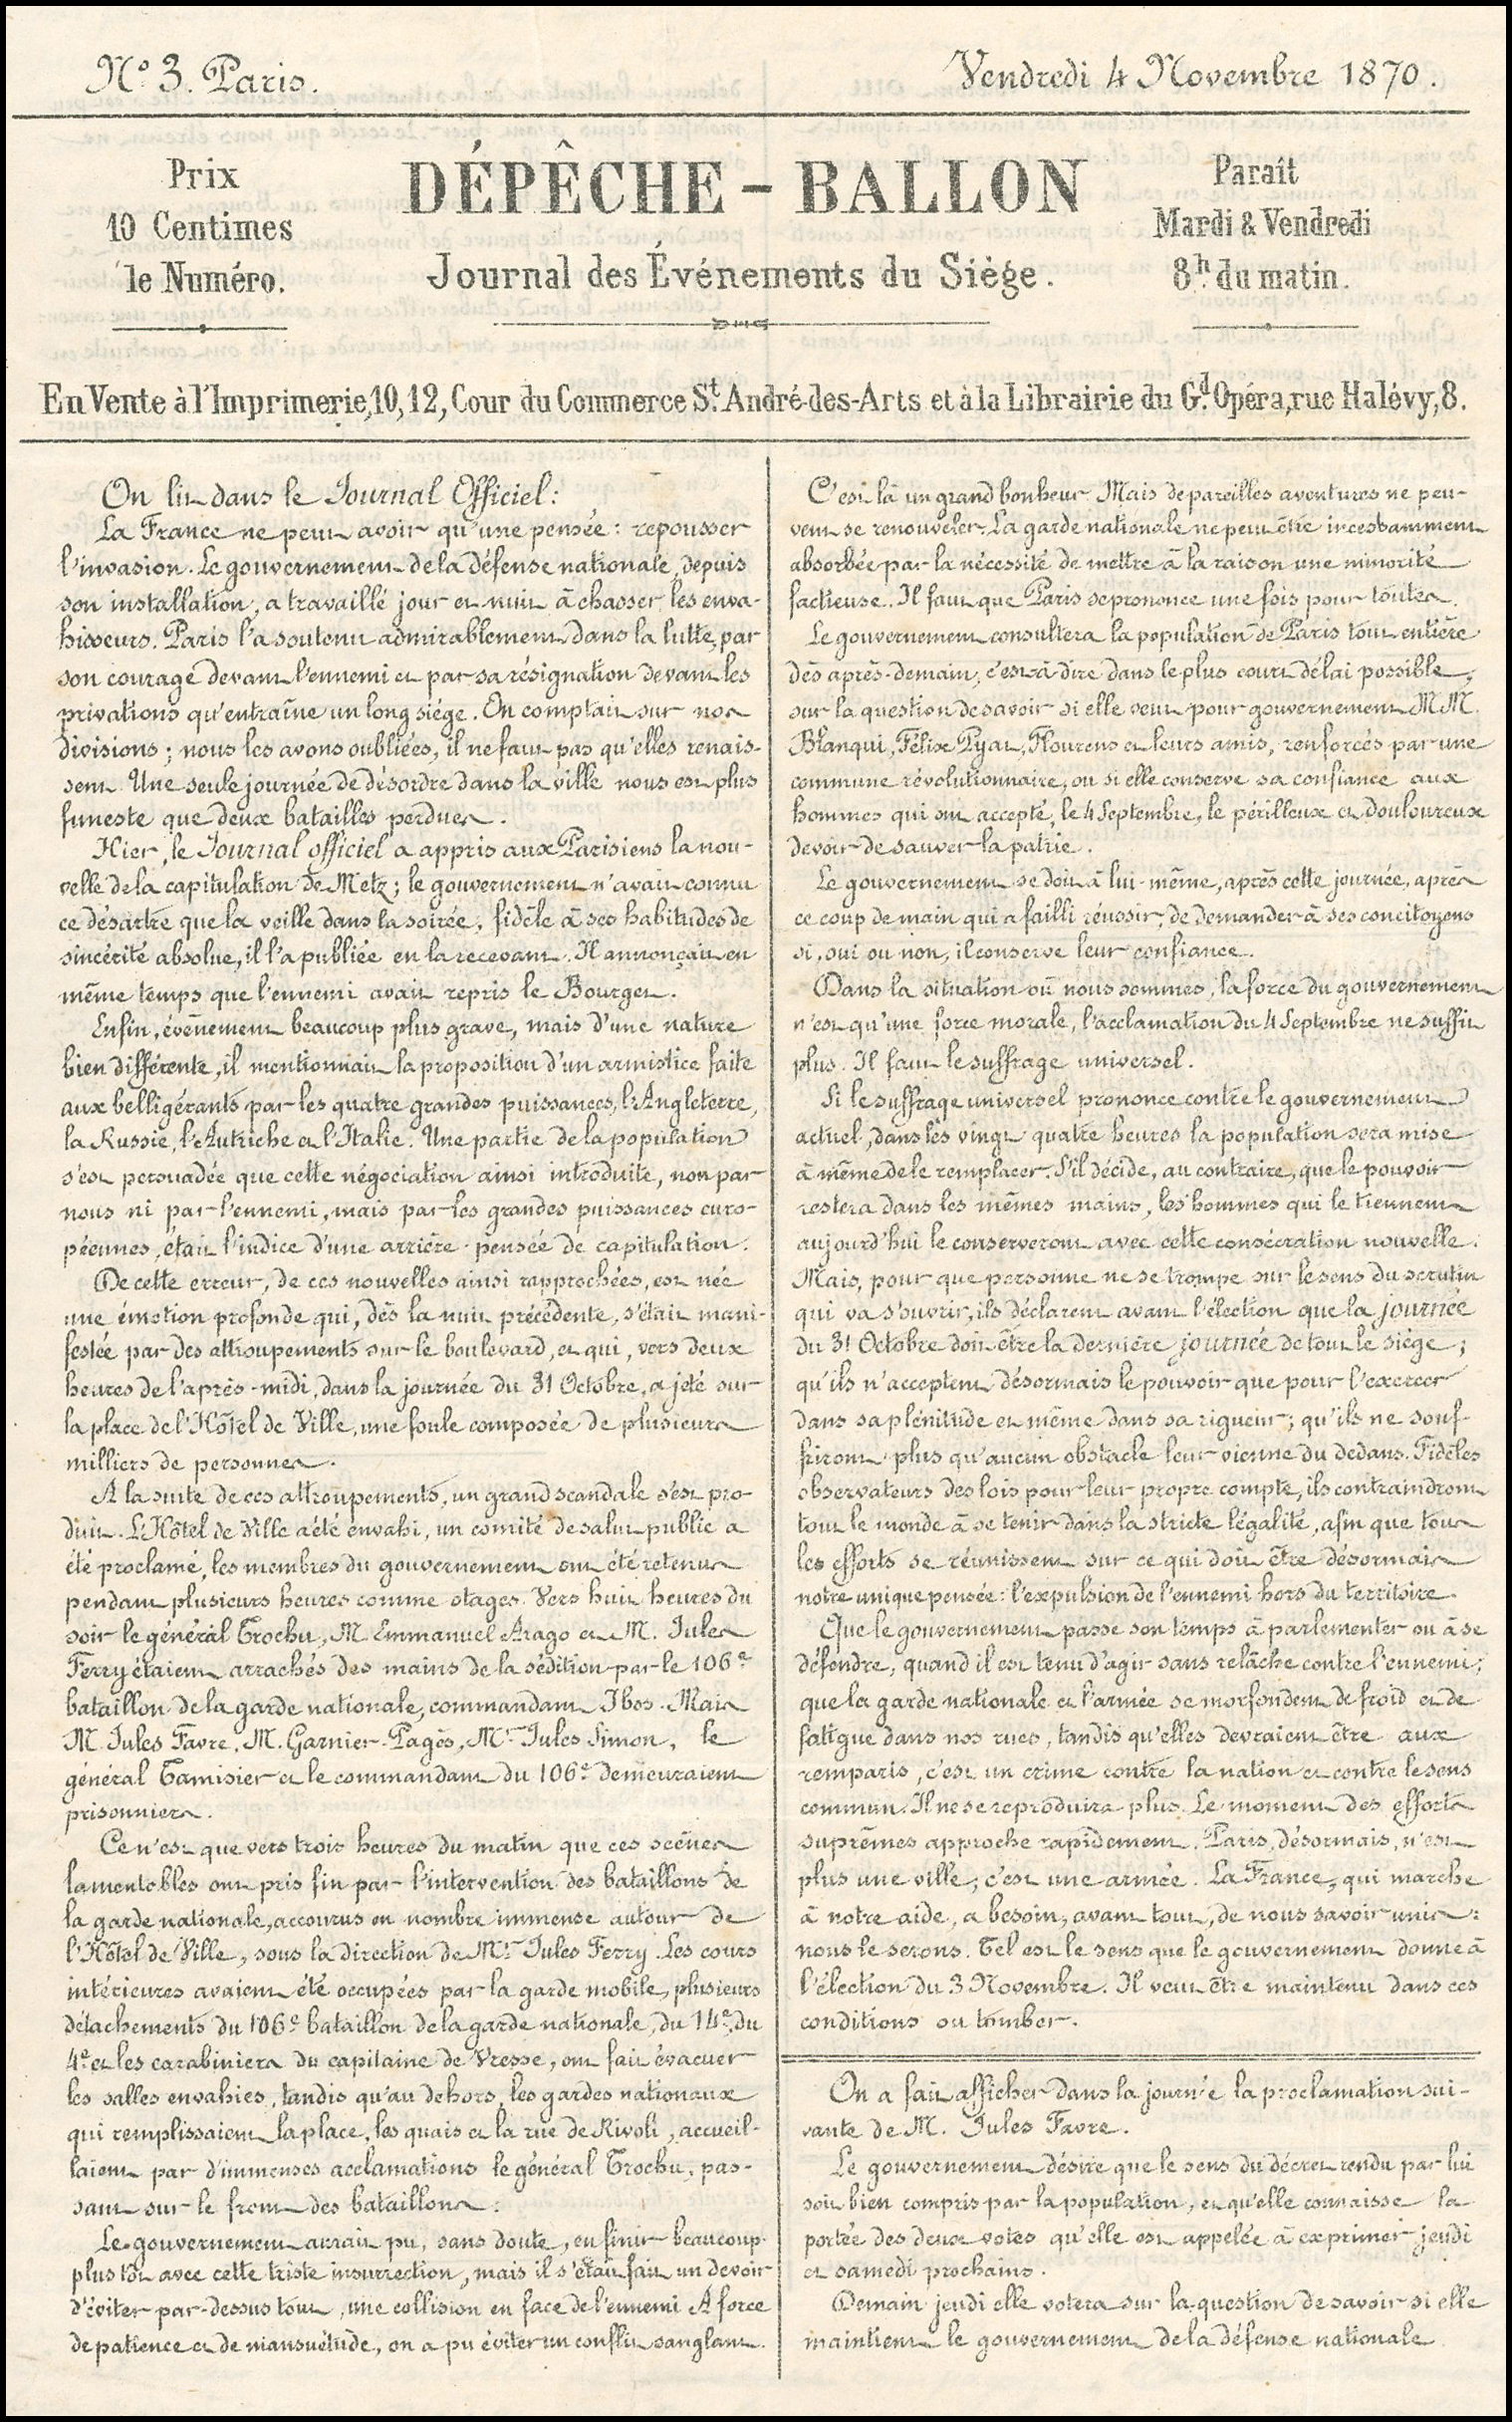 Nº 3. Paris.
Vendredi 4 Novembre 1870.
Prix
10 Centimes
le Numéro.
DÉPÊCHE - BALLON
Journal des Événements du Siège.
Paraît
Mardi & Vendredi
8h. du matin.
En Vente à l'Imprimerie, 10, 12, Cour du Commerce St. André-des-Arts et à la Librairie du Gd. Opéra, rue Halévy, 8.
On lit dans le Journal Officiel :
La France ne peut avoir qu'une pensée : repousser
l'invasion. Le gouvernement de la défense nationale, depuis
son installation, a travaillé jour et nuit à chasser les enva-
hisseurs. Paris l'a soutenu admirablement dans la lutte, par
son courage devant l'ennemi et par sa résignation devant les
privations qu'entraîne un long siége. On comptait sur nos
divisions ; nous les avons oubliées, il ne faut pas qu'elles renais-
sent. Une seule journée de désordre dans la ville nous est plus
funeste que deux batailles perdues.
Hier, le Journal officiel a appris aux Parisiens la nou-
velle de la capitulation de Metz ; le gouvernement n'avait connu
ce désastre que la veille dans la soirée, fidèle à ses habitudes de
sincérité absolue, il l'a publiée en la recevant. Il annonçait en
même temps que l'ennemi avait repris le Bourget.
Enfin, événement beaucoup plus grave, mais d'une nature
bien différente, il mentionnait la proposition d'un armistice faite
aux belligérants par les quatre grandes puissances, l'Angleterre,
la Russie, l'Autriche et l'Italie. Une partie de la population
s'est persuadée que cette négociation ainsi introduite, non par
nous ni par l'ennemi, mais par les grandes puissances euro-
péennes, était l'indice d'une arrière-pensée de capitulation.
De cette erreur, de ces nouvelles ainsi rapprochées, est née
une émotion profonde qui, dès la nuit précédente, s'était mani-
festée par des attroupements sur le boulevard, et qui, vers deux
heures de l'après-midi, dans la journée du 31 Octobre, a jeté sur
la place de l'Hôtel de Ville, une foule composée de plusieurs
milliers de personnes.
A la suite de ces attroupements, un grand scandale s'est pro-
duit. L'Hôtel de Ville a été envahi, un comité de salut public a
été proclamé, les membres du gouvernement ont été retenus
pendant plusieurs heures comme otages. Vers huit heures du
soir le général Trochu, M. Emmanuel Arago et M. Jules
Ferry étaient arrachés des mains de la sédition par le 106e
bataillon de la garde nationale, commandant Ibos. Mais
M. Jules Favre, M. Garnier-Pagès, Mr Jules Simon, le
général Tamisier et le commandant du 106e demeuraient
prisonniers.
Ce n'est que vers trois heures du matin que ces scènes
lamentables ont pris fin par l'intervention des bataillons de
la garde nationale, accourus en nombre immense autour de
l'Hôtel de Ville, sous la direction de Mr Jules Ferry. Les cours
intérieures avaient été occupées par la garde mobile, plusieurs
détachements du 106e bataillon de la garde nationale, du 14e, du
4e et les carabiniers du capitaine de Vresse, ont fait évacuer
les salles envahies, tandis qu'au dehors, les gardes nationaux
qui remplissaient la place, les quais et la rue de Rivoli, accueil-
laient par d'immenses acclamations le général Trochu, pas-
sant sur le front des bataillons.
Le gouvernement aurait pu, sans doute, en finir beaucoup
plus tôt avec cette triste insurrection, mais il s'était fait un devoir
d'éviter par-dessus tout, une collision en face de l'ennemi. A force
de patience et de mansuétude, on a pu éviter un conflit sanglant.
C'est là un grand bonheur. Mais de pareilles aventures ne peu-
vent se renouveler. La garde nationale ne peut être incessamment
absorbée par la nécessité de mettre à la raison une minorité
factieuse. Il faut que Paris se prononce une fois pour toutes.
Le gouvernement consultera la population de Paris tout entière
dès après-demain, c'est-à-dire dans le plus court délai possible,
sur la question de savoir si elle veut pour gouvernement MM.
Blanqui, Félix Pyat, Flourens et leurs amis, renforcés par une
commune révolutionnaire, ou si elle conserve sa confiance aux
hommes qui ont accepté, le 4 Septembre, le périlleux et douloureux
devoir de sauver la patrie.
Le gouvernement se doit à lui-même, après cette journée, après
ce coup de main qui a failli réussir, de demander à ses concitoyens
si, oui ou non, il conserve leur confiance.
Dans la situation où nous sommes, la force du gouvernement
n'est qu'une force morale, l'acclamation du 4 Septembre ne suffit
plus. Il faut le suffrage universel.
Si le suffrage universel prononce contre le gouvernement
actuel, dans les vingt quatre heures la population sera mise
à même de le remplacer. S'il décide, au contraire, que le pouvoir
restera dans les mêmes mains, les hommes qui le tiennent
aujourd'hui le conserveront avec cette consécration nouvelle.
Mais, pour que personne ne se trompe sur le sens du scrutin
qui va s'ouvrir, ils déclarent avant l'élection que la journée
du 31 Octobre doit être la dernière journée de tout le siège ;
qu'ils n'acceptent désormais le pouvoir que pour l'exercer
dans sa plénitude et même dans sa rigueur ; qu'ils ne souf-
friront plus qu'aucun obstacle leur vienne du dedans. Fidèles
observateurs des lois pour leur propre compte, ils contraindront
tout le monde à se tenir dans la stricte légalité, afin que tous
les efforts se réunissent sur ce qui doit être désormais
notre unique pensée : l'expulsion de l'ennemi hors du territoire.
Que le gouvernement passe son temps à parlementer ou à se
défendre, quand il est tenu d'agir sans relâche contre l'ennemi ;
que la garde nationale et l'armée se morfondent de froid et de
fatigue dans nos rues, tandis qu'elles devraient être aux
remparts, c'est un crime contre la nation et contre le sens
commun. Il ne se reproduira plus. Le moment des efforts
suprêmes approche rapidement. Paris, désormais, n'est
plus une ville, c'est une armée. La France, qui marche
à notre aide, a besoin, avant tout, de nous savoir unis :
nous le serons. Tel est le sens que le gouvernement donne à
l'élection du 3 Novembre. Il veut être maintenu dans ces
conditions ou tomber.
On a fait afficher dans la journée la proclamation sui-
vante de M. Jules Favre.
Le gouvernement désire que le sens du décret rendu par lui
soit bien compris par la population, et qu'elle connaisse la
portée des deux votes qu'elle est appelée à exprimer jeudi
et samedi prochains.
Demain jeudi elle votera sur la question de savoir si elle
maintient le gouvernement de la défense nationale